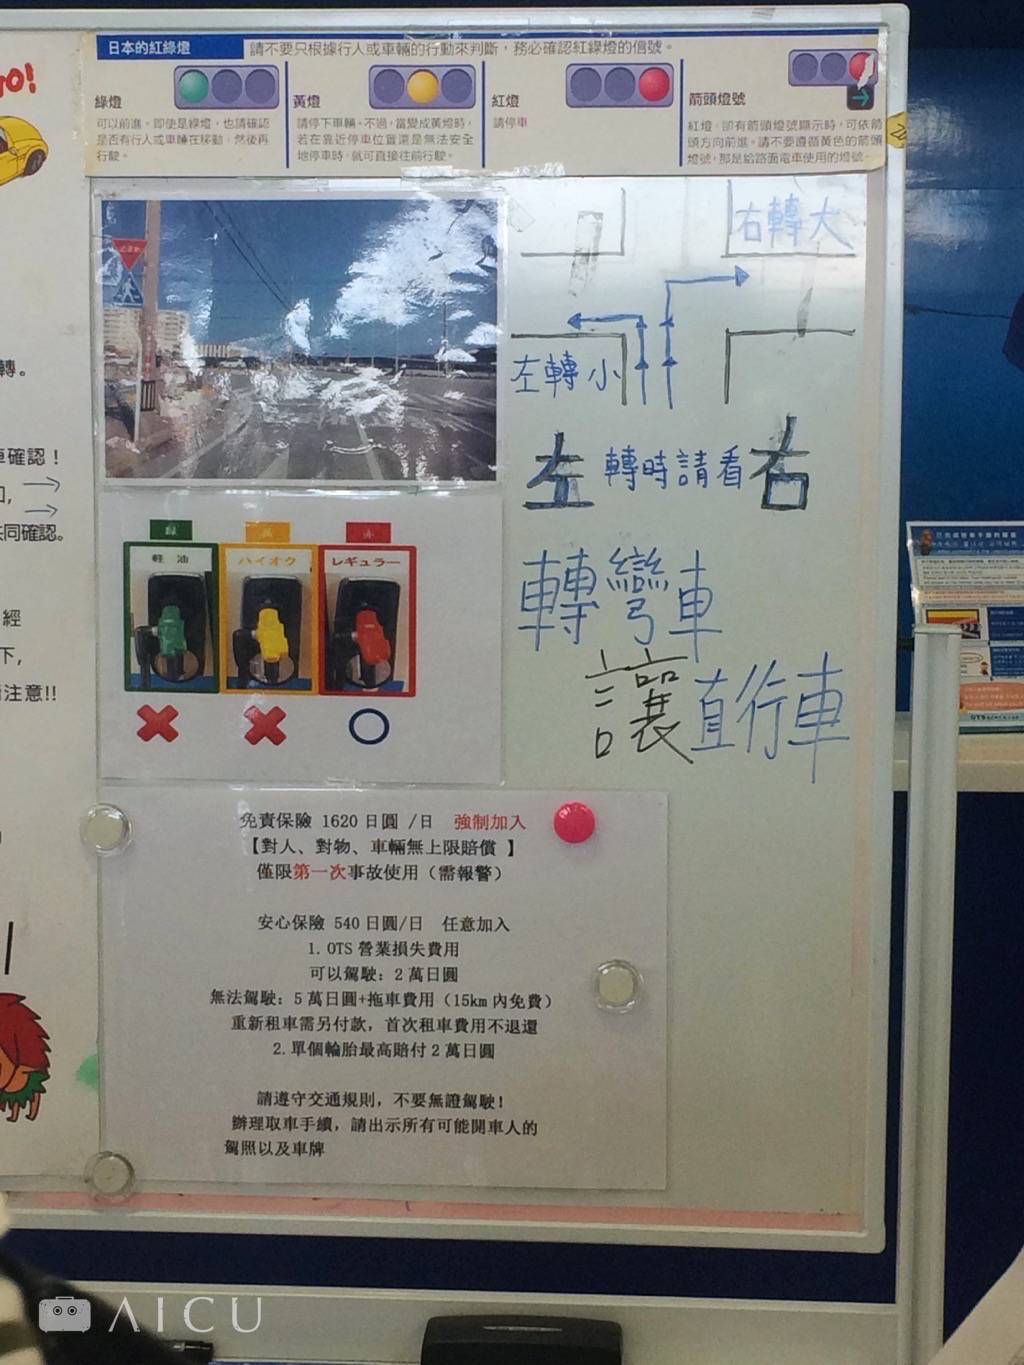 日本的紅綠燈
請不要只根據行人或車輛的行動來判斷，務必確認紅綠燈的信號。
綠燈
可以前進。即使是綠燈，也請確認
是否有行人或車輛在移動，然後再
行駛。
黃燈
請停下車輛。不過，當變成黃燈時，
若在靠近停車位置還是無法安全
地停車時，就可直接往前行駛。
紅燈
請停車
箭頭燈號
紅燈，卻有箭頭燈號顯示時，可依箭
頭方向前進。請不要遵循黃色的箭頭
燈號，那是給路面電車使用的燈號。
右轉大
左轉小
左轉時請看右
轉彎車
讓直行車
緑
黄
赤
軽油
ハイオク
レギュラー
免責保險 1620 日圓 /日 強制加入
【對人、對物、車輛無上限賠償 】
僅限第一次事故使用（需報警）
安心保險 540 日圓/日 任意加入
1. OTS 營業損失費用
可以駕駛：2 萬日圓
無法駕駛：5 萬日圓+拖車費用（15km 內免費）
重新租車需另付款，首次租車費用不退還
2. 單個輪胎最高賠付 2 萬日圓
請遵守交通規則，不要無證駕駛！
辦理取車手續，請出示所有可能開車人的
駕照以及車牌
轉。
車確認！
共同確認。
經
下，
注意!!
AICU